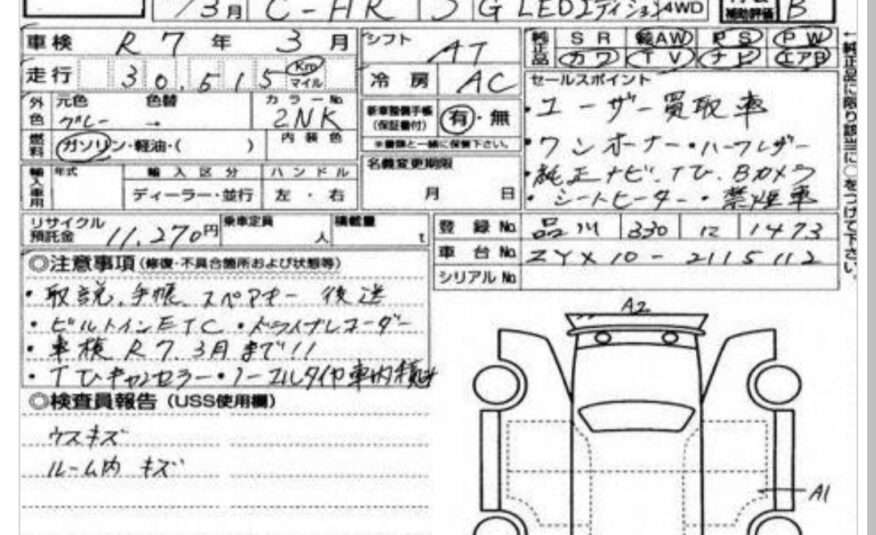 3月 C-HR 5 G LEDエディション4WD 補助評価 B
車検 R 7 年 3 月 シフト AT 純正品 SR 純AW PS PW
カワ TV ナビ エアB
走行 30,515 Km マイル 冷房 AC セールスポイント
外色 元色 色替 カラーNo.
グレー → 2NK
新車整備手帳(保証書付) 有・無
※書類と一緒に保管下さい。
・ユーザー買取車
・ワンオーナー・ハーフレザー
・純正ナビ、TV、Bカメラ
・シートヒーター・禁煙車
燃料 ガソリン・軽油・( ) 内装色
名義変更期限
月 日
輸入車用 年式 輸入区分 ハンドル
ディーラー・並行 左・右
リサイクル預託金 11,270円 乗車定員 人 積載量 t
登録No. 品川 330 1473
車台No. ZYX10-2115112
シリアルNo.
◎注意事項(修復・不具合箇所および状態等)
・取説、手帳、スペアキー 後送
・ビルトインETC・ドライブレコーダー
・車検 R7.3月まで!!
・TVキャンセラー・ノーマルタイヤ車内積込
◎検査員報告(USS使用欄)
ウスキズ
ルーム内 キズ
A2
A1
←純正品に限り該当に○をつけて下さい。